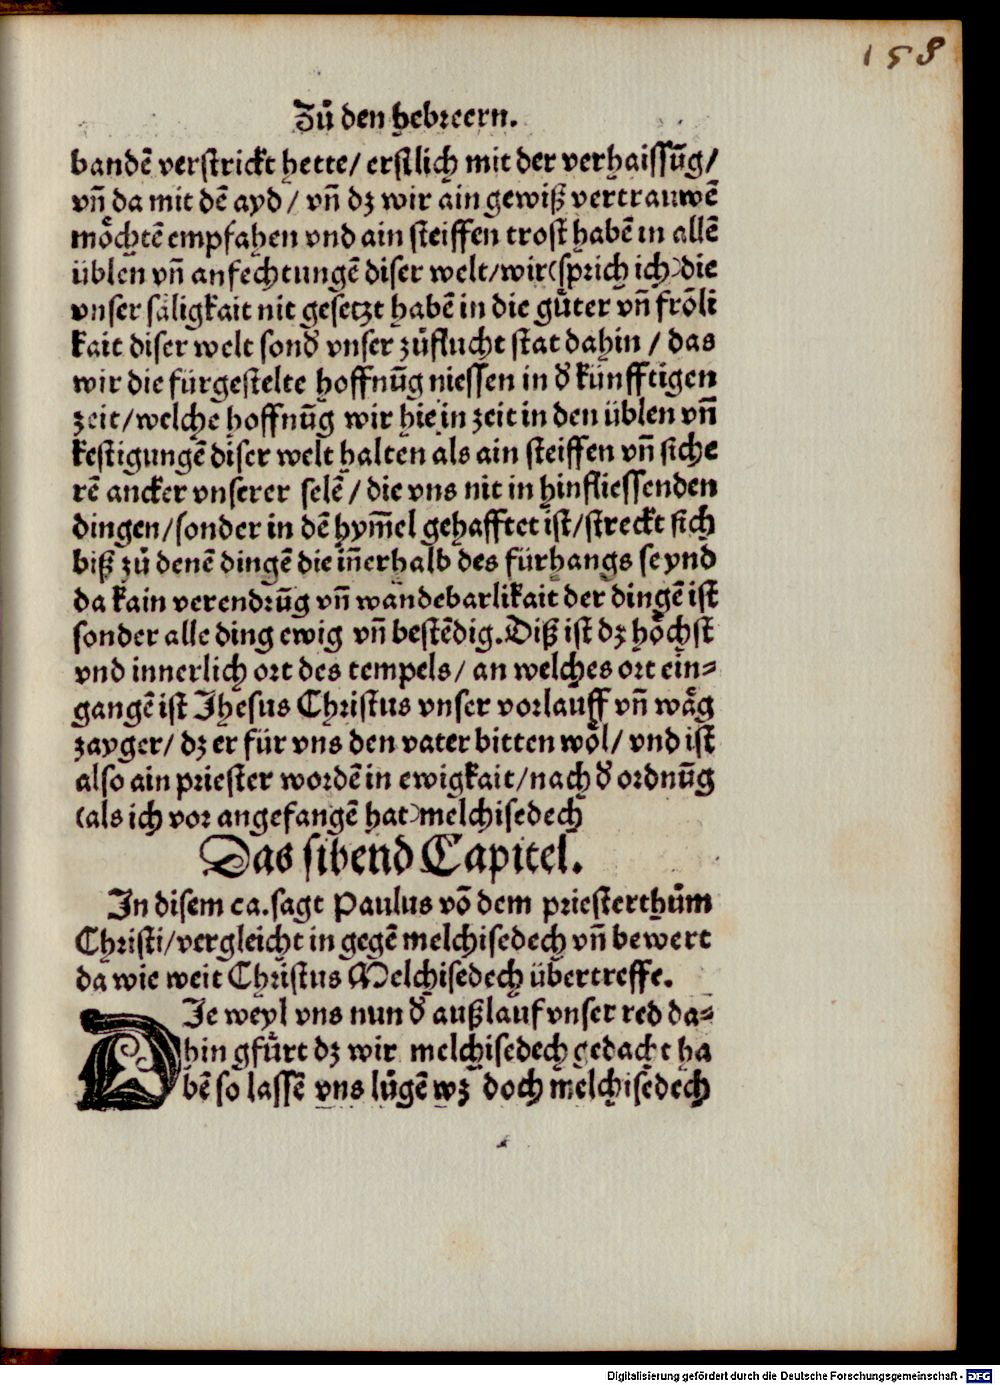 158
Zů den hebreern.
bandē verstrickt hette/ erstlich mit der verhaissūg/
vn̄ da mit dē ayd/ vn̄ dz wir ain gewiß vertrauwē
moͤchtē empfahen vnd ain steiffen trost habē in allē
üblen vn̄ anfechtungē diser welt/wir(sprich ich)die
vnser säligkait nit gesetzt habē in die guͤter vn̄ froͤli
kait diser welt sond̕ vnser zůflucht stat dahin / das
wir die fürgestelte hoffnūg niessen in d̕ künfftigen
zeit/welche hoffnūg wir hie in zeit in den üblen vn̄
kestigungē diser welt halten als ain steiffen vn̄ siche
rē ancker vnserer selē/ die vns nit in hinfliessenden
dingen/sonder in dē hym̄el gehafftet ist/streckt sich
biß zů denē dingē die in̄erhalb des fürhangs seynd
da kain verendrūg vn̄ wandebarlikait der dingē ist
sonder alle ding ewig vn̄ bestēdig. Diß ist dz hoͤchst
vnd innerlich ort des tempels/ an welches ort ein-
gangē ist Jhesus Christus vnser vorlauff vn̄ waͤg
zayger/ dz er für vns den vater bitten woͤl/ vnd ist
also ain priester wordē in ewigkait/nach d̕ ordnūg
(als ich vor angefangē hat)melchisedech
Das sibend Capitel.
In disem ca. sagt Paulus vō dem priesterthům
Christi/vergleicht in gegē melchisedech vn̄ bewert
da wie weit Christus Melchisedech übertreffe.
DJe weyl vns nun d̕ außlauf vnser red da-
hin gfuͤrt dz wir melchisedech gedacht ha
bē so lassē vns lůgē wz doch melchisedech
Digitalisierung gefördert durch die Deutsche Forschungsgemeinschaft - DFG